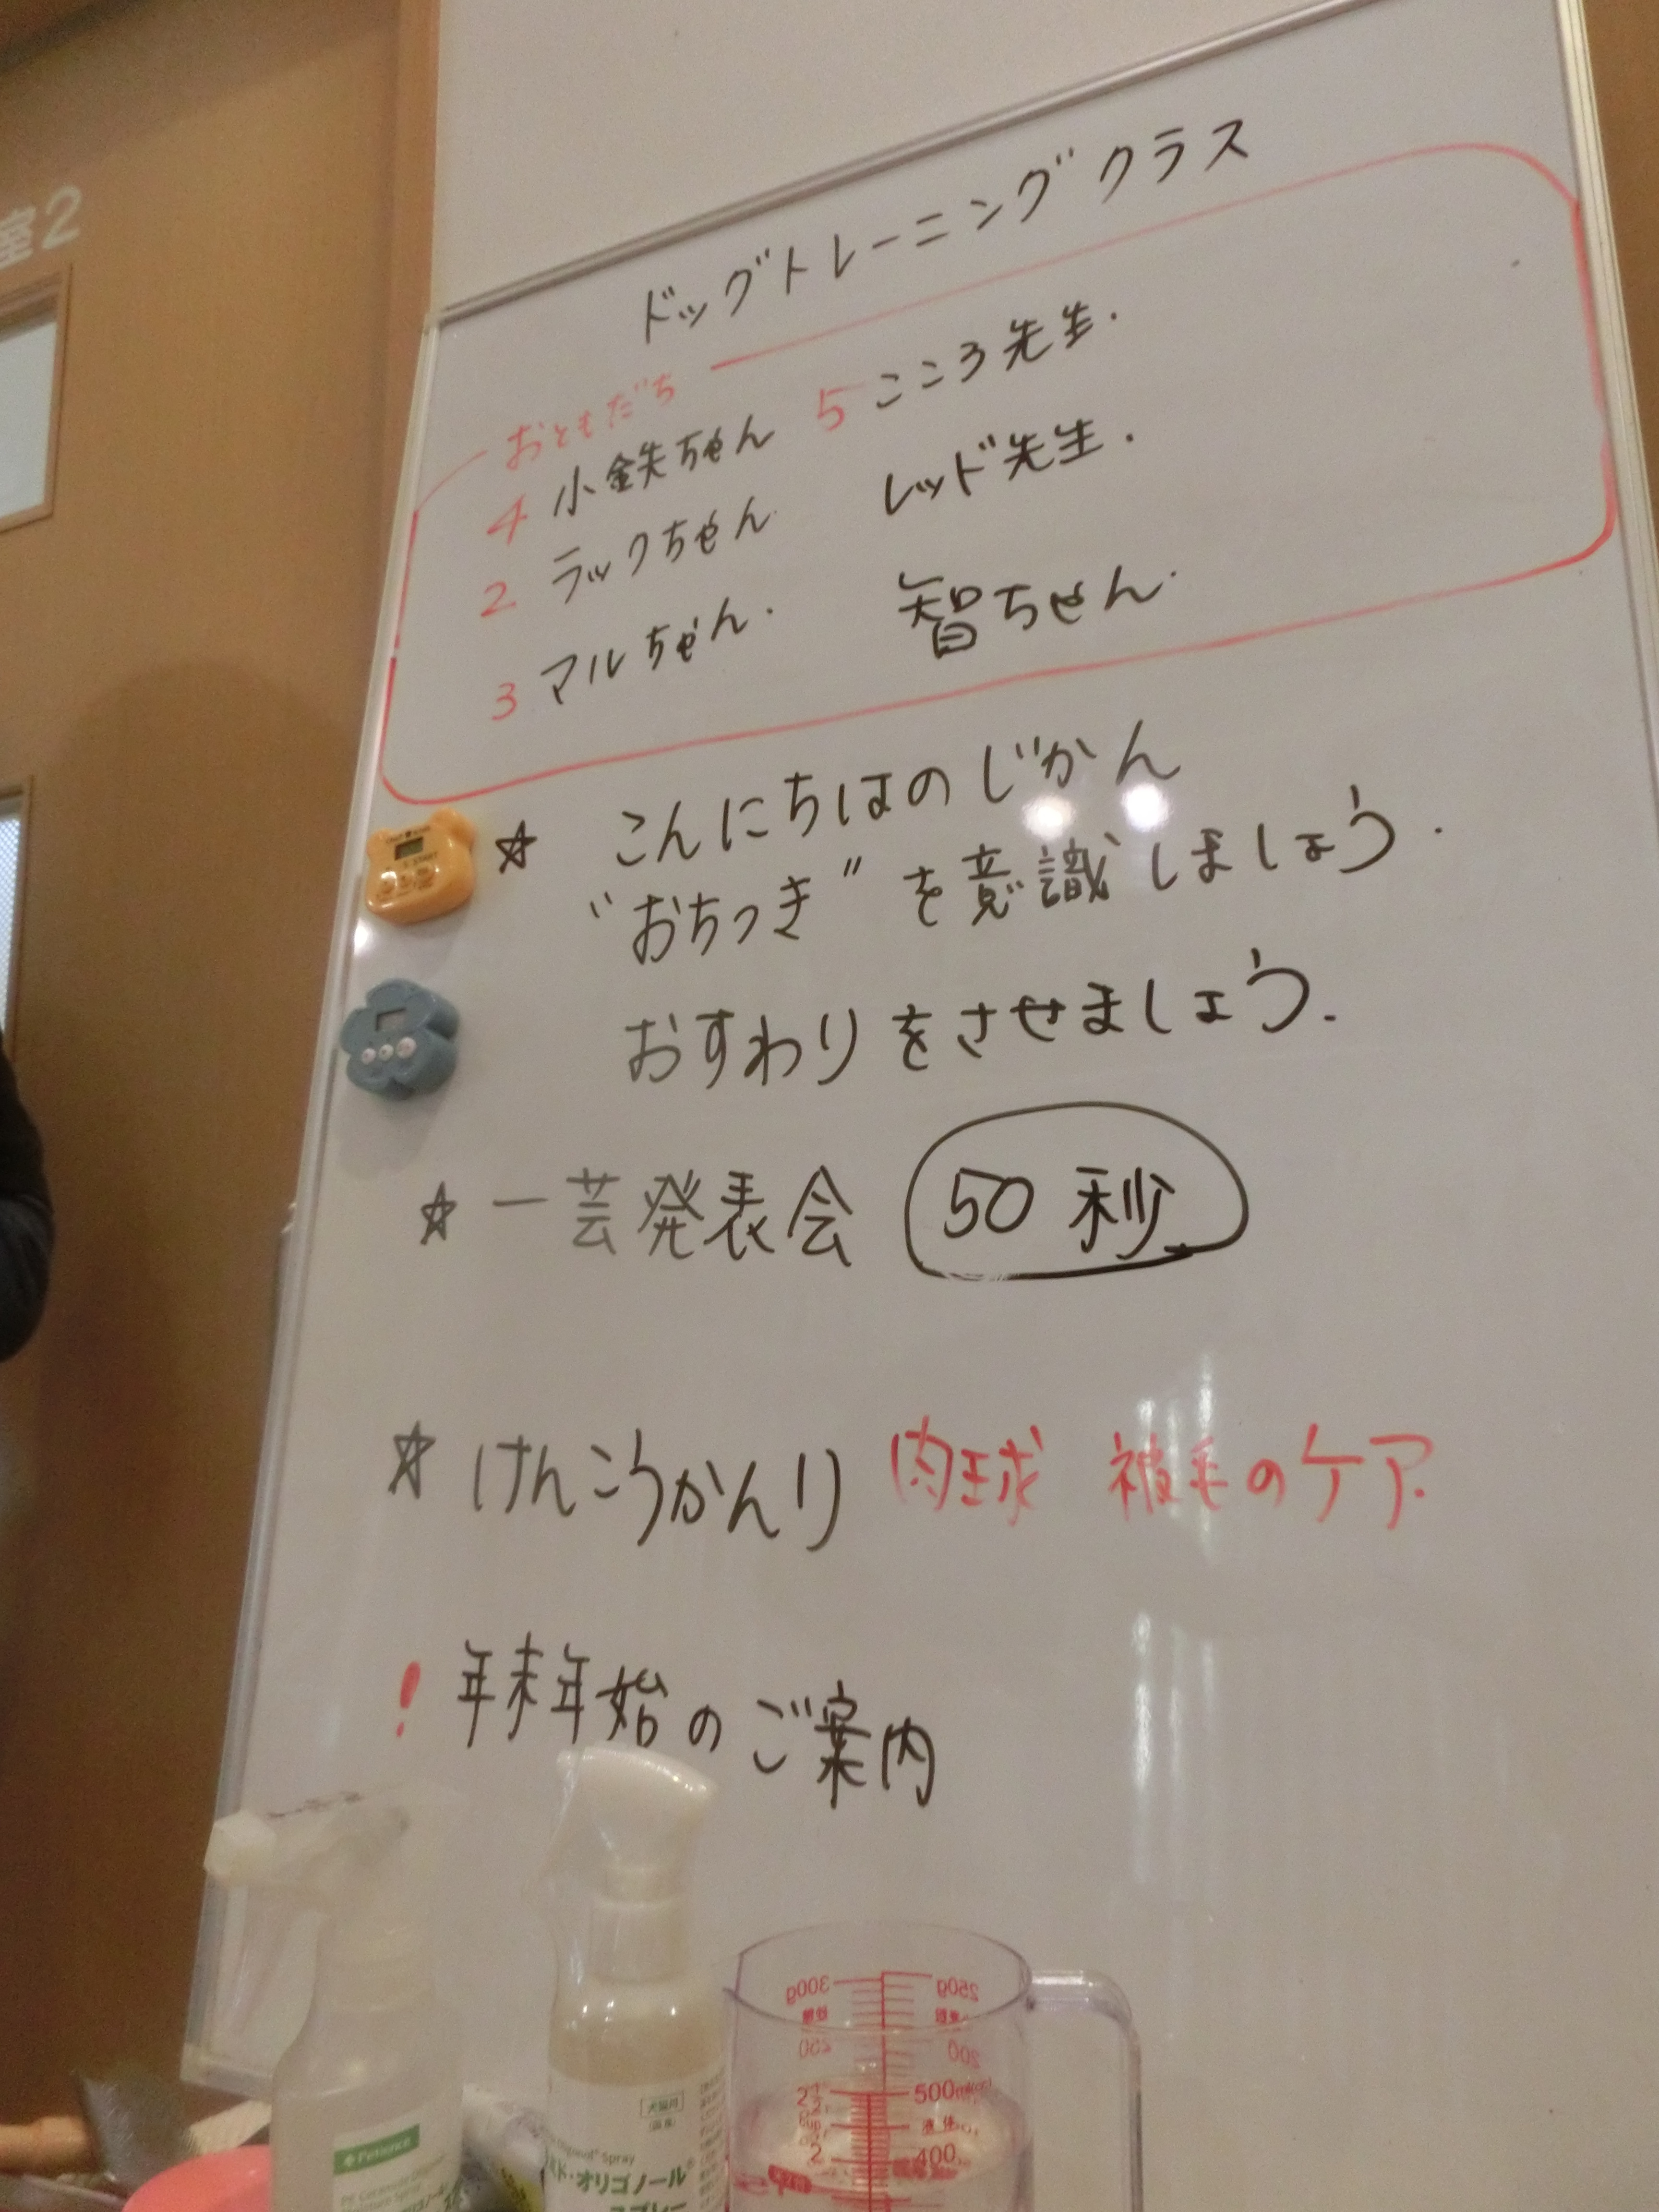 室2
ドッグトレーニングクラス
おともだち
4 小鉄ちゃん 5 こころ先生.
2 ラックちゃん レッド先生.
3 マルちゃん. 智ちゃん.
☆ こんにちはのじかん
"おちつき"を意識しましょう.
おすわりをさせましょう.
☆ 一芸発表会 50秒
☆ けんこうかんり 肉球 被毛のケア.
! 年末年始のご案内
300g 250g
250 200
500
2 400
Patience
犬猫用
Spray
オリゴノール
スプレー